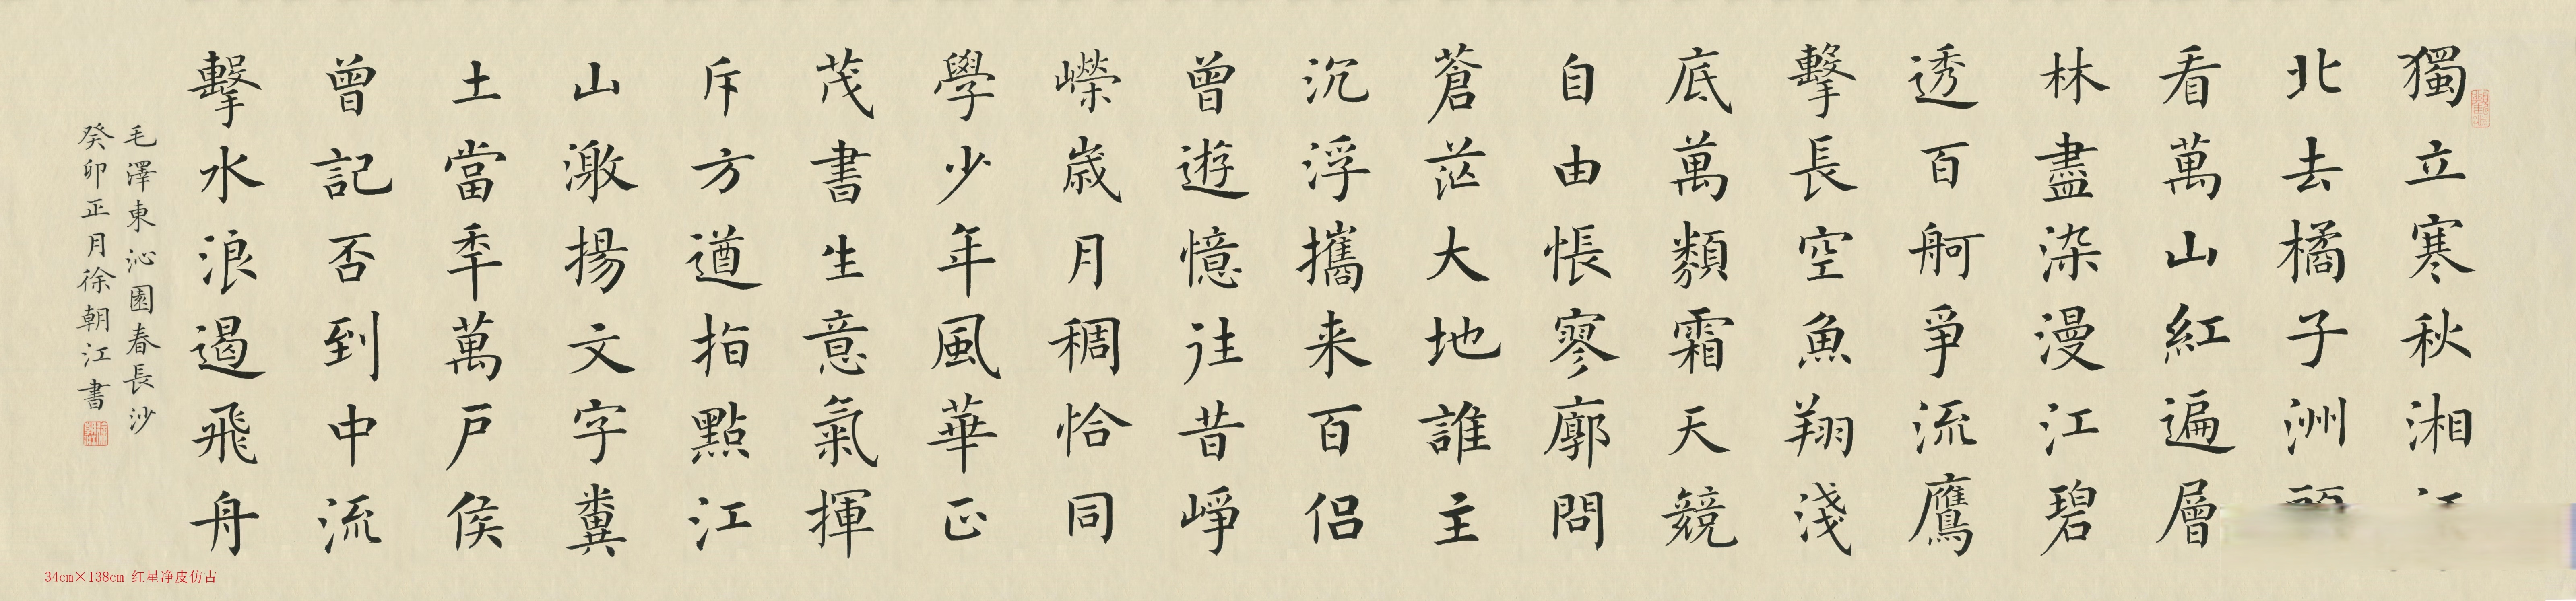 獨立寒秋湘
北去橘子洲
看萬山紅遍層
林盡染漫江碧
透百舸爭流鷹
擊長空魚翔淺
底萬類霜天競
自由悵寥廓問
蒼茫大地誰主
沉浮攜来百侣
曾遊憶往昔崢
嶸歲月稠恰同
學少年風華正
茂書生意氣揮
斥方遒指點江
山激揚文字糞
土當秊萬戶侯
曾記否到中流
擊水浪遏飛舟
毛澤東沁園春長沙
癸卯正月徐朝江書
34cm×138cm 红星净皮仿古